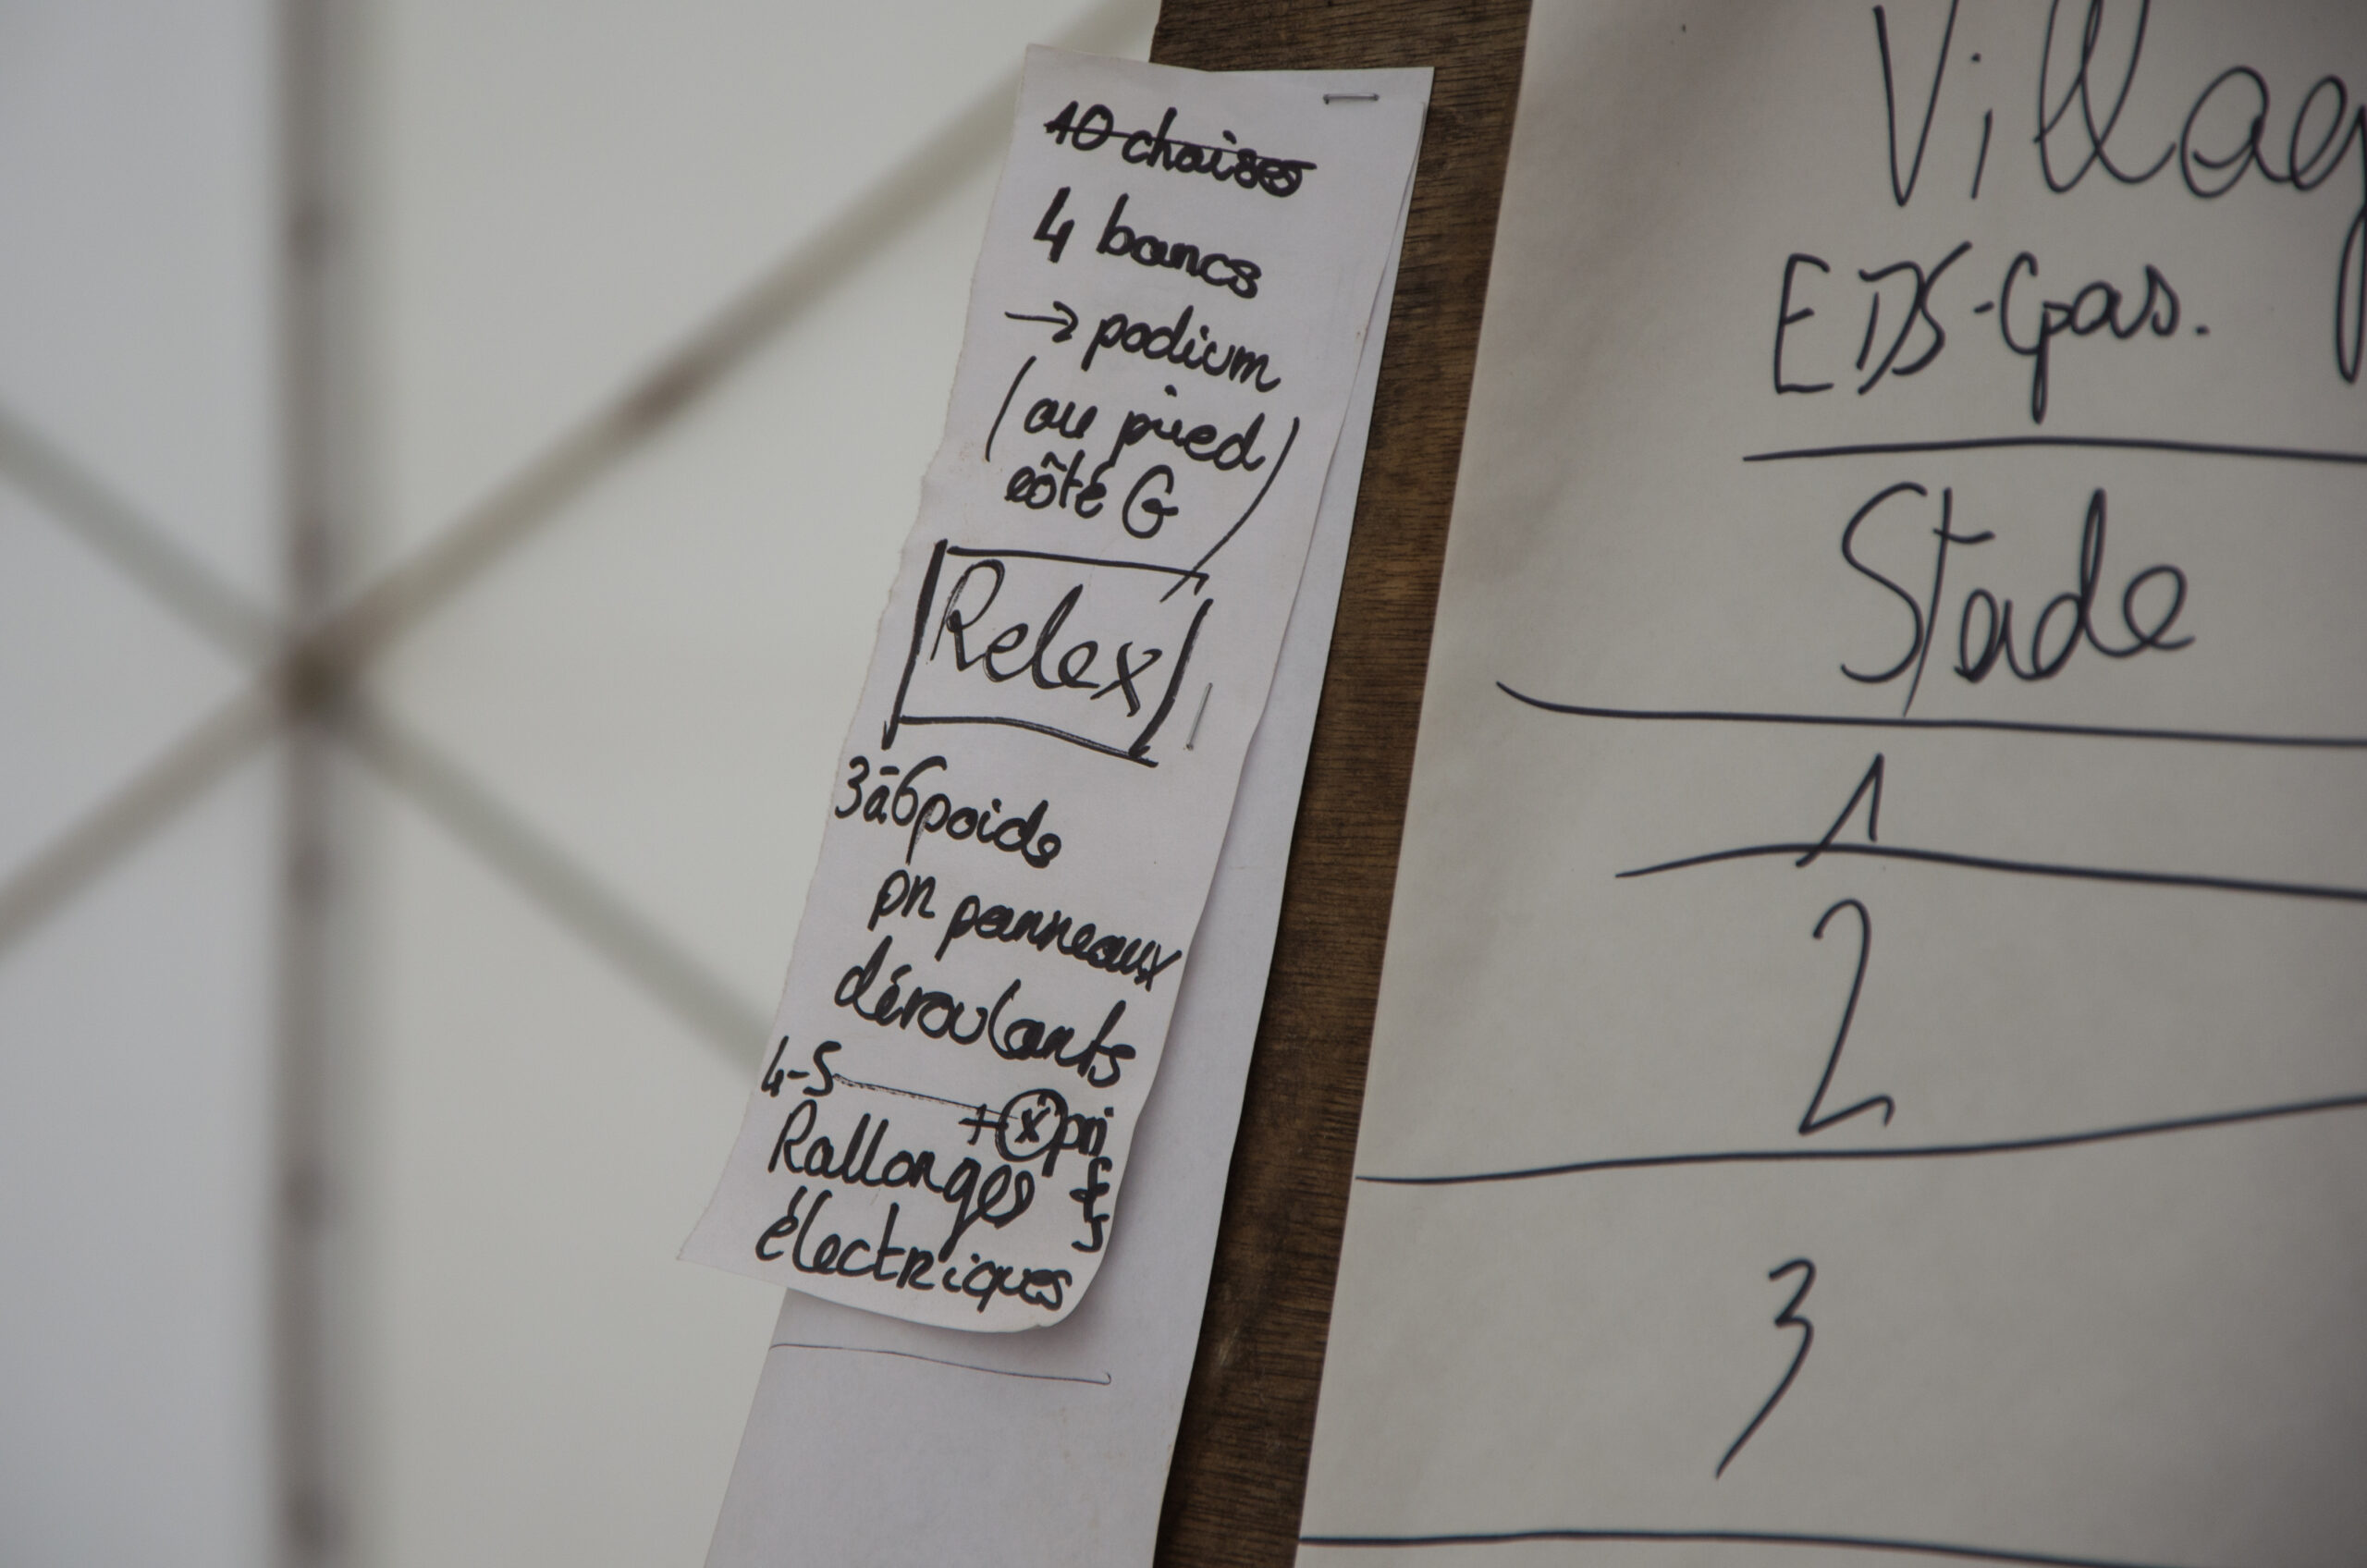 10 chaises
4 bancs
→ podium
(au pied)
côté G
Relax
3 à 6 poids
pr panneaux
déroulants
4-5
+ (x) pri
Rallonges
électriques
Villag
EDS-Gas.
Stade
1
2
3